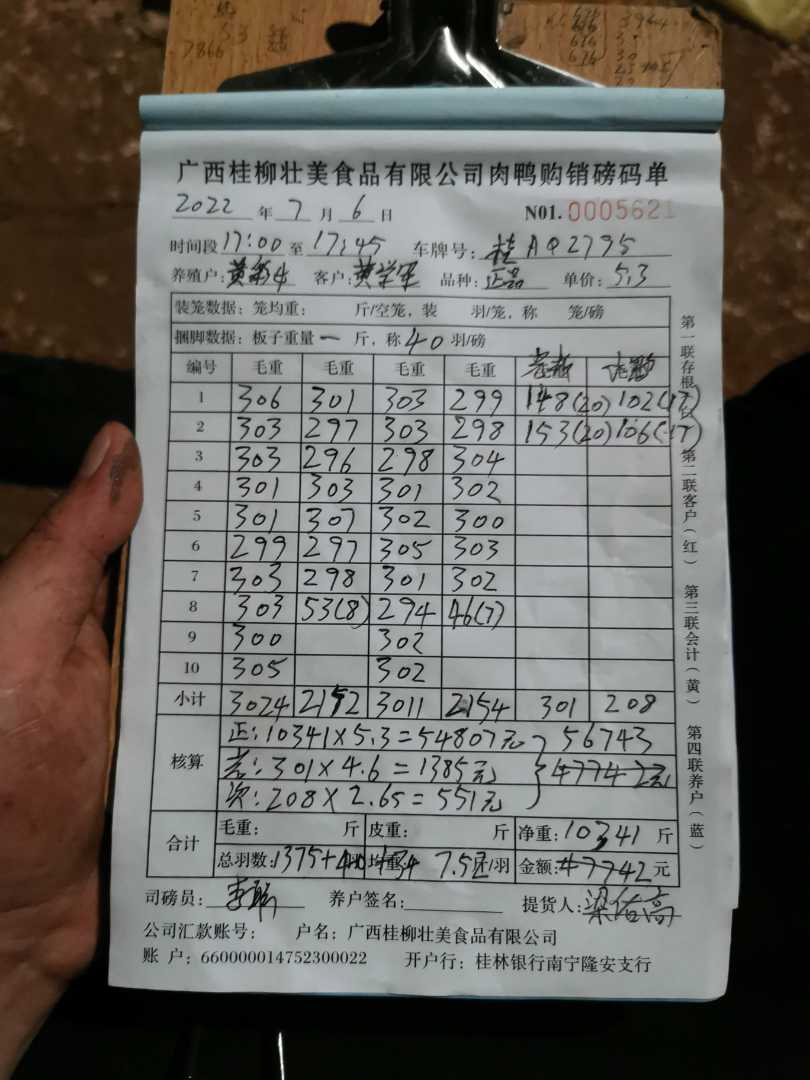 7866 5.3
广西桂柳壮美食品有限公司肉鸭购销磅码单
2022 年 7 月 6 日 N01.0005621
时间段17:00至17:45 车牌号:桂A02795
养殖户:黄 客户:黄学军 品种:正品 单价:5.3
装笼数据:笼均重: 斤/空笼,装 羽/笼,称 笼/磅
捆脚数据:板子重量一斤,称40羽/磅
编号 毛重 毛重 毛重 毛重
1 306 301 303 299 148(20) 102(17)
2 303 297 303 298 153(20) 106(17)
3 303 296 298 304
4 301 303 301 302
5 301 307 302 300
6 299 297 305 303
7 303 298 301 302
8 303 53(8) 294 46(7)
9 300 302
10 305 302
小计 3024 2152 3011 2154 301 208
核算 正:10341×5.3=54807元 56743
:301×4.6=1385元 47742元
次:208×2.65=551元
合计 毛重: 斤 皮重: 斤 净重:10341斤
总羽数:1375+40+34 均重 7.52/羽 金额:47742元
司磅员: 养户签名: 提货人:梁佑高
公司汇款账号: 户名:广西桂柳壮美食品有限公司
账 户:660000014752300022 开户行:桂林银行南宁隆安支行
第一联存根(白) 第二联客户(红) 第三联会计(黄) 第四联养户(蓝)